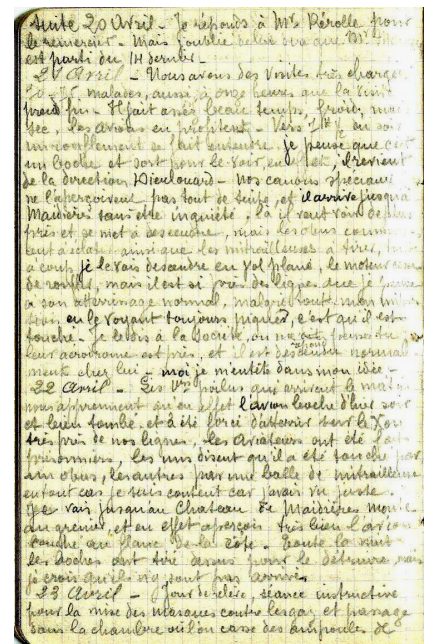 suite 20 Avril - Je réponds à Mr Pérolle pour
le remercier - Mais j'oublie de lui dire que Mr
est parti du 14 dernier -
21 Avril - Nous avons des visites très chargées
malades, aussi à onze heures que la visite
prend fin - Il fait assez beau temps, froid, mais
sec, les avions en profitent - Vers du soir
un ronflement se fait entendre, je pense que c'est
un boche et sort pour le voir, en effet, il revient
de la direction Dieulouard - Nos canons spéciaux
ne l'aperçoivent pas tout de suite, et il arrive jusqu'à
Maidières sans être inquiété, là il veut voir de plus
près et se met à descendre, mais les obus commencent
à éclater ainsi que les mitrailleuses à tirer, tout
à coup je le vais descendre en vol plané, le moteur cesse
de ronfler, mais il est si près des lignes que je pense
à son atterrissage normal, malgré toute mon
en le voyant toujours piquer, c'est qu'il est
touché - Je le dis à la Société, on me répond
leur aérodrome est près, et il est descendu normale-
ment chez lui - moi je m'entête dans mon idée -
22 Avril - Les 1ers poilus qui arrivent le matin
nous apprennent qu'en effet l'avion boche d'hier soir
est bien tombé et a été forcé d'atterrir vers le Xon
très près de nos lignes, les aviateurs ont été faits
prisonniers, les uns disent qu'il a été touché par
un obus, les autres par une balle de mitrailleuse
en tout cas je suis content car j'avais vu juste.
Je vais jusqu'au Chateau de Maidières monte
au grenier, et en effet aperçois très bien l'avion
couché au flanc de la côte. Toute la nuit
les boches ont tiré dessus pour le détruire, mais
je crois qu'ils n'y sont pas arrivés
23 Avril - Jour de relève, séance instructive
pour la mise des masques contre les gaz et passage
dans la chambre où l'on casse des ampoules de